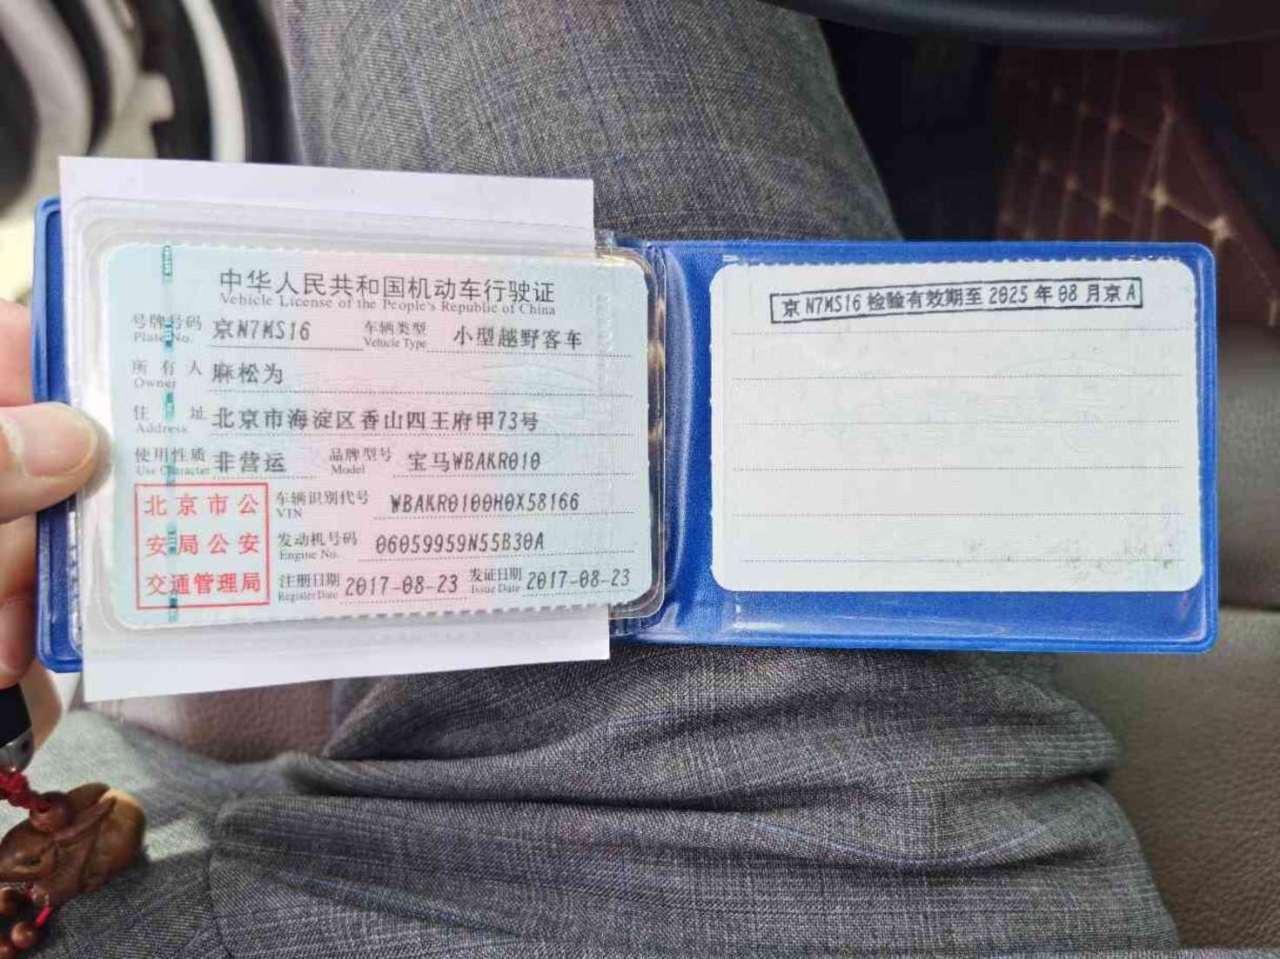 中华人民共和国机动车行驶证
Vehicle License of the People's Republic of China
号牌号码 京N7MS16 车辆类型 小型越野客车
Plate No. Vehicle Type
所有人 麻松为
Owner
住址 北京市海淀区香山四王府甲73号
Address
使用性质 非营运 品牌型号 宝马WBAKR010
Use Character Model
北京市公
安局公安
交通管理局
车辆识别代号 WBAKR0100H0X58166
VIN
发动机号码 06059959N55B30A
Engine No.
注册日期 2017-08-23 发证日期 2017-08-23
Register Date Issue Date
京N7MS16检验有效期至2025年08月京A